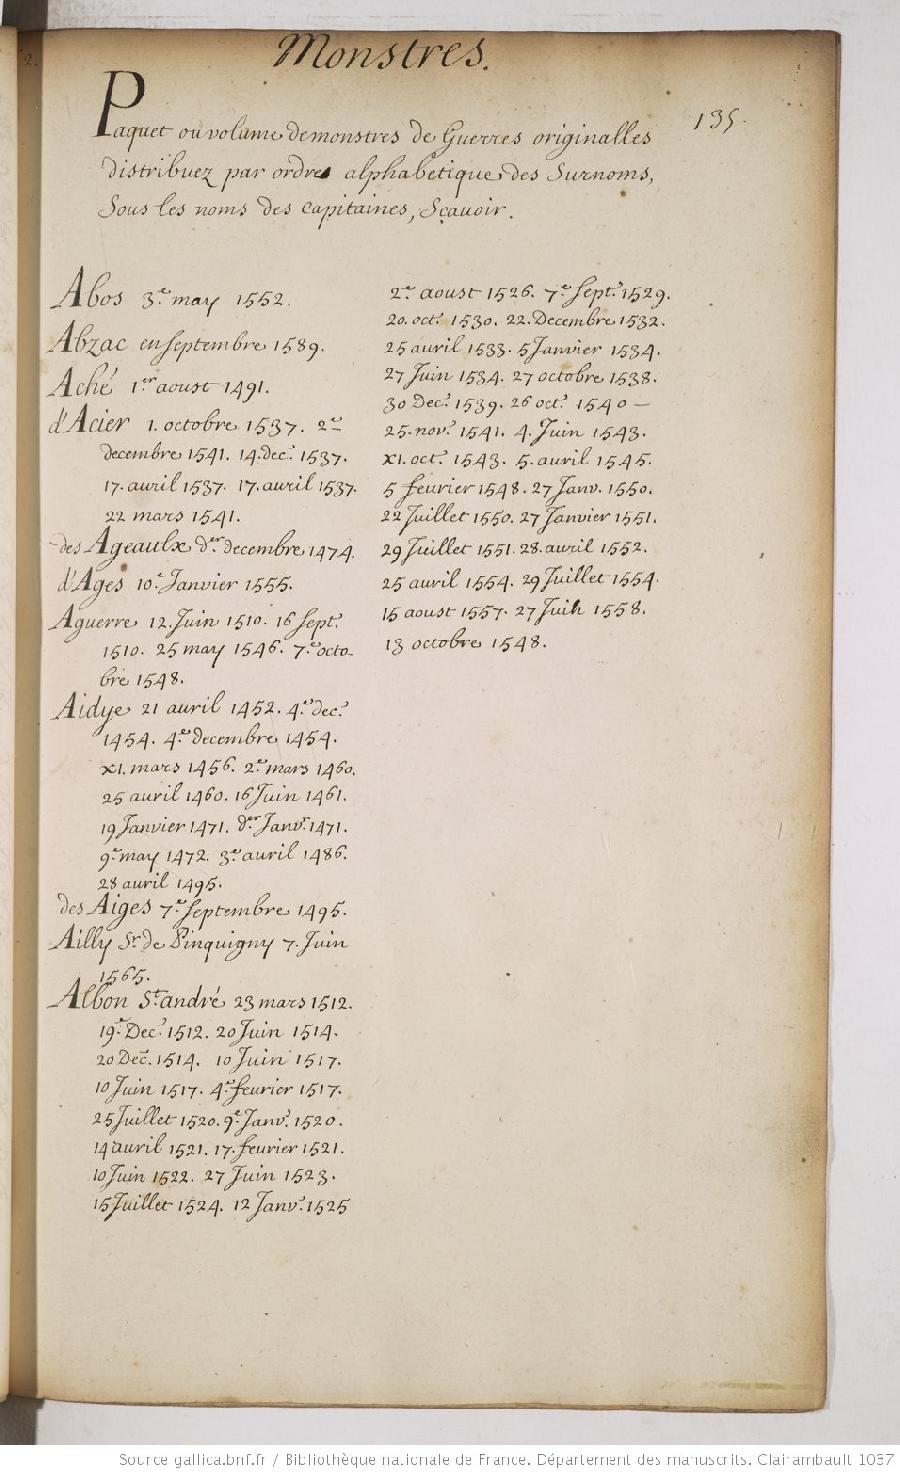 Monstres.
135.
Paquet ou volume de monstres de Guerres originalles
distribuez par ordre alphabetique des Surnoms,
Sous les noms des Capitaines, Sçauoir.
Abos 3.e may 1552.
Abzac en septembre 1589.
Aché 1.er aoust 1491.
d'Acier 1. octobre 1537. 2.e
decembre 1541. 14. dec.e 1537.
17. auril 1537. 17. auril 1537.
22 mars 1541.
des Ageaulx d.er decembre 1474.
d'Ages 10.e Janvier 1555.
Aguerre 12. Juin 1510. 16 Sept.e
1510. 25 may 1546. 7.e octo-
bre 1548.
Aidye 21 auril 1452. 4.e dec.e
1454. 4.e decembre 1454.
xi. mars 1456. 2.e mars 1460.
25 auril 1460. 16 Juin 1461.
19 Janvier 1471. d.er Janv.r 1471.
9.e may 1472. 3.e auril 1486.
28 auril 1495.
des Aiges 7.e septembre 1495.
Ailly S.r de Pinquigny 7. Juin
1565.
Albon S.t andré 23 mars 1512.
19.e Dec.e 1512. 20 Juin 1514.
20 Dec.e 1514. 10 Juin 1517.
10 Juin 1517. 4.e feurier 1517.
25 Juillet 1520. 9.e Janv.r 1520.
14 auril 1521. 17. feurier 1521.
10 Juin 1522. 27 Juin 1523.
15 Juillet 1524. 12 Janv.r 1525
2.e aoust 1526. 7.e Sept.e 1529.
20. oct.e 1530. 22. Decembre 1532.
25 auril 1533. 5 Janvier 1534.
27 Juin 1534. 27 octobre 1538.
30 Dec.e 1539. 26 oct.e 1540 —
25. nov.e 1541. 4. Juin 1543.
xi. oct.e 1543. 5. auril 1545.
5 feurier 1548. 27 Janv. 1550.
22 Juillet 1550. 27 Janvier 1551.
29 Juillet 1551. 28. auril 1552.
25 auril 1554. 29 Juillet 1554.
15 aoust 1557. 27 Juin 1558.
13 octobre 1548.
Source gallica.bnf.fr / Bibliothèque nationale de France. Département des manuscrits. Clairambault 1037